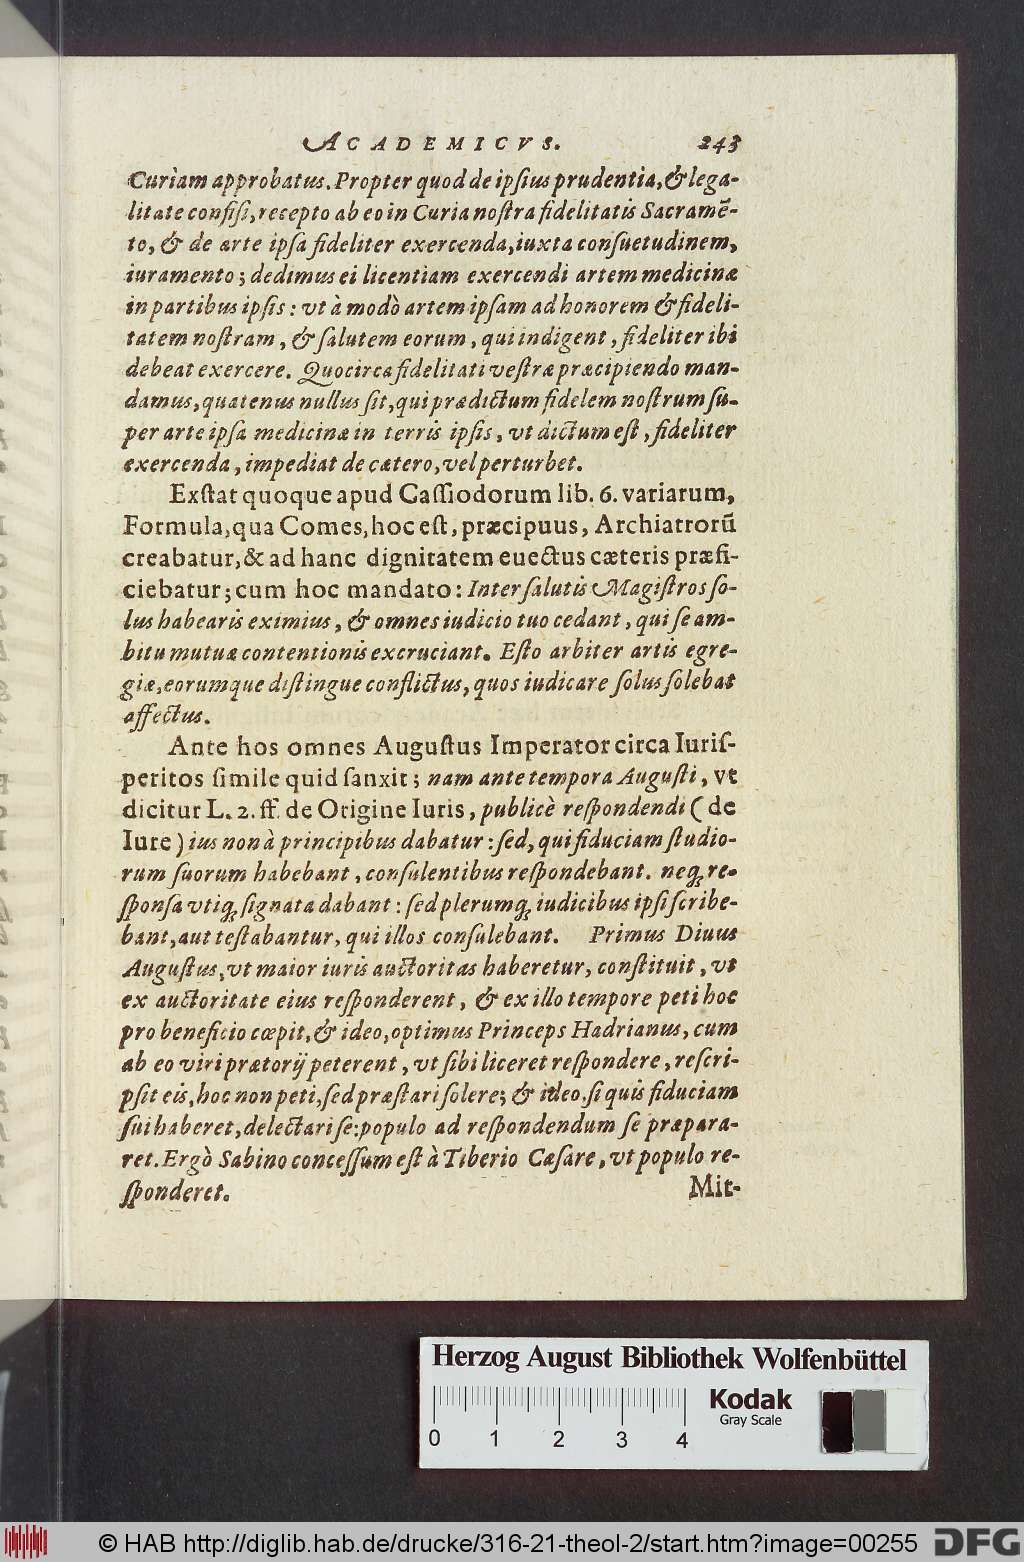 ACADEMICVS. 243
Curiam approbatus. Propter quod de ipſius prudentia, & lega-
litate confiſi, recepto ab eo in Curia noſtra fidelitatis Sacramẽ-
to, & de arte ipſa fideliter exercenda, iuxta conſuetudinem,
iuramento; dedimus ei licentiam exercendi artem medicinæ
in partibus ipſis: vt à modò artem ipſam ad honorem & fideli-
tatem noſtram, & ſalutem eorum, qui indigent, fideliter ibi
debeat exercere. Quocirca fidelitati veſtræ præcipiendo man-
damus, quatenus nullus ſit, qui prædictum fidelem noſtrum ſu-
per arte ipſa medicinæ in terris ipſis, vt dictum eſt, fideliter
exercenda, impediat de cætero, vel perturbet.
Exſtat quoque apud Caſſiodorum lib. 6. variarum,
Formula, qua Comes, hoc eſt, præcipuus, Archiatrorũ
creabatur, & ad hanc dignitatem euectus cæteris præfi-
ciebatur; cum hoc mandato: Inter ſalutis Magiſtros ſo-
lus habearis eximius, & omnes iudicio tuo cedant, qui ſe am-
bitu mutuæ contentionis excruciant. Eſto arbiter artis egre-
giæ, eorumque diſtingue conflictus, quos iudicare ſolus ſolebat
affectus.
Ante hos omnes Auguſtus Imperator circa Iuriſ-
peritos ſimile quid ſanxit; nam ante tempora Auguſti, vt
dicitur L. 2. ff. de Origine Iuris, publicè reſpondendi (de
Iure) ius non à principibus dabatur: ſed, qui fiduciam ſtudio-
rum ſuorum habebant, conſulentibus reſpondebant. neq; re-
ſponſa vtiq; ſignata dabant: ſed plerumq; iudicibus ipſi ſcribe-
bant, aut teſtabantur, qui illos conſulebant. Primus Diuus
Auguſtus, vt maior iuris auctoritas haberetur, conſtituit, vt
ex auctoritate eius reſponderent, & ex illo tempore peti hoc
pro beneficio cœpit, & ideo, optimus Princeps Hadrianus, cum
ab eo viri prætorij peterent, vt ſibi liceret reſpondere, reſcri-
pſit eis, hoc non peti, ſed præſtari ſolere; & ideo, ſi quis fiduciam
ſui haberet, delectari ſe: populo ad reſpondendum ſe præpara-
ret. Ergò Sabino conceſſum eſt à Tiberio Cæſare, vt populo re-
ſponderet.
Mit-
Herzog August Bibliothek Wolfenbüttel
Kodak
Gray Scale
0 1 2 3 4
© HAB http://diglib.hab.de/drucke/316-21-theol-2/start.htm?image=00255
DFG